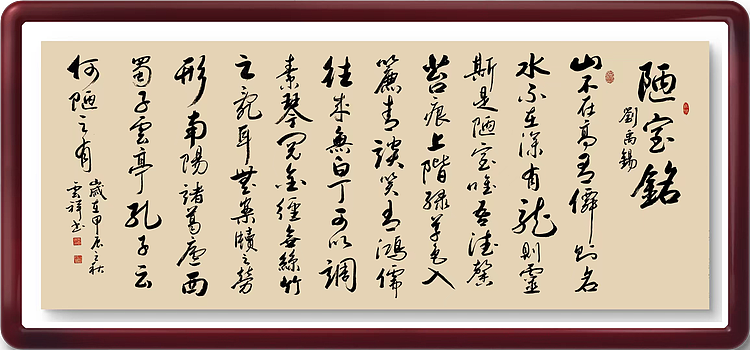 陋室銘
劉禹錫
山不在高有僊則名
水不在深有龍則靈
斯是陋室唯吾德馨
苔痕上階緑草色入
簾青談笑有鴻儒
往來無白丁可以調
素琴閲金經無絲竹
之亂耳無案牘之勞
形南陽諸葛廬西
蜀子雲亭孔子云
何陋之有
歲在甲辰之秋
雲祥書